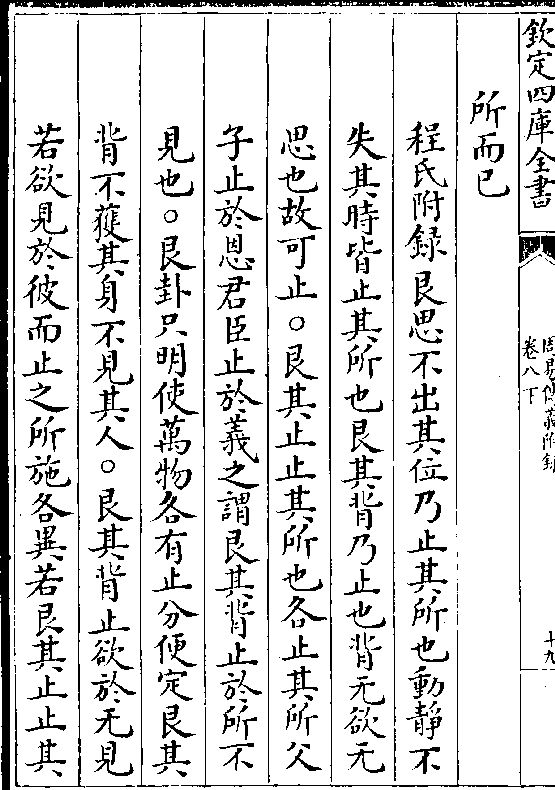 欽定四庫全書
周易傳義附錄
卷八下
十九
所而已
程氏附録艮思不出其位乃止其所也動靜不
失其時皆止其所也艮其背乃止也背无欲无
思也故可止○艮其止止其所也各止其所父
子止於恩君臣止於義之謂艮其背止於所不
見也○艮卦只明使萬物各有止分便定艮其
背不獲其身不見其人○艮其背止欲於无見
若欲見於彼而止之所施各異若艮其止止其